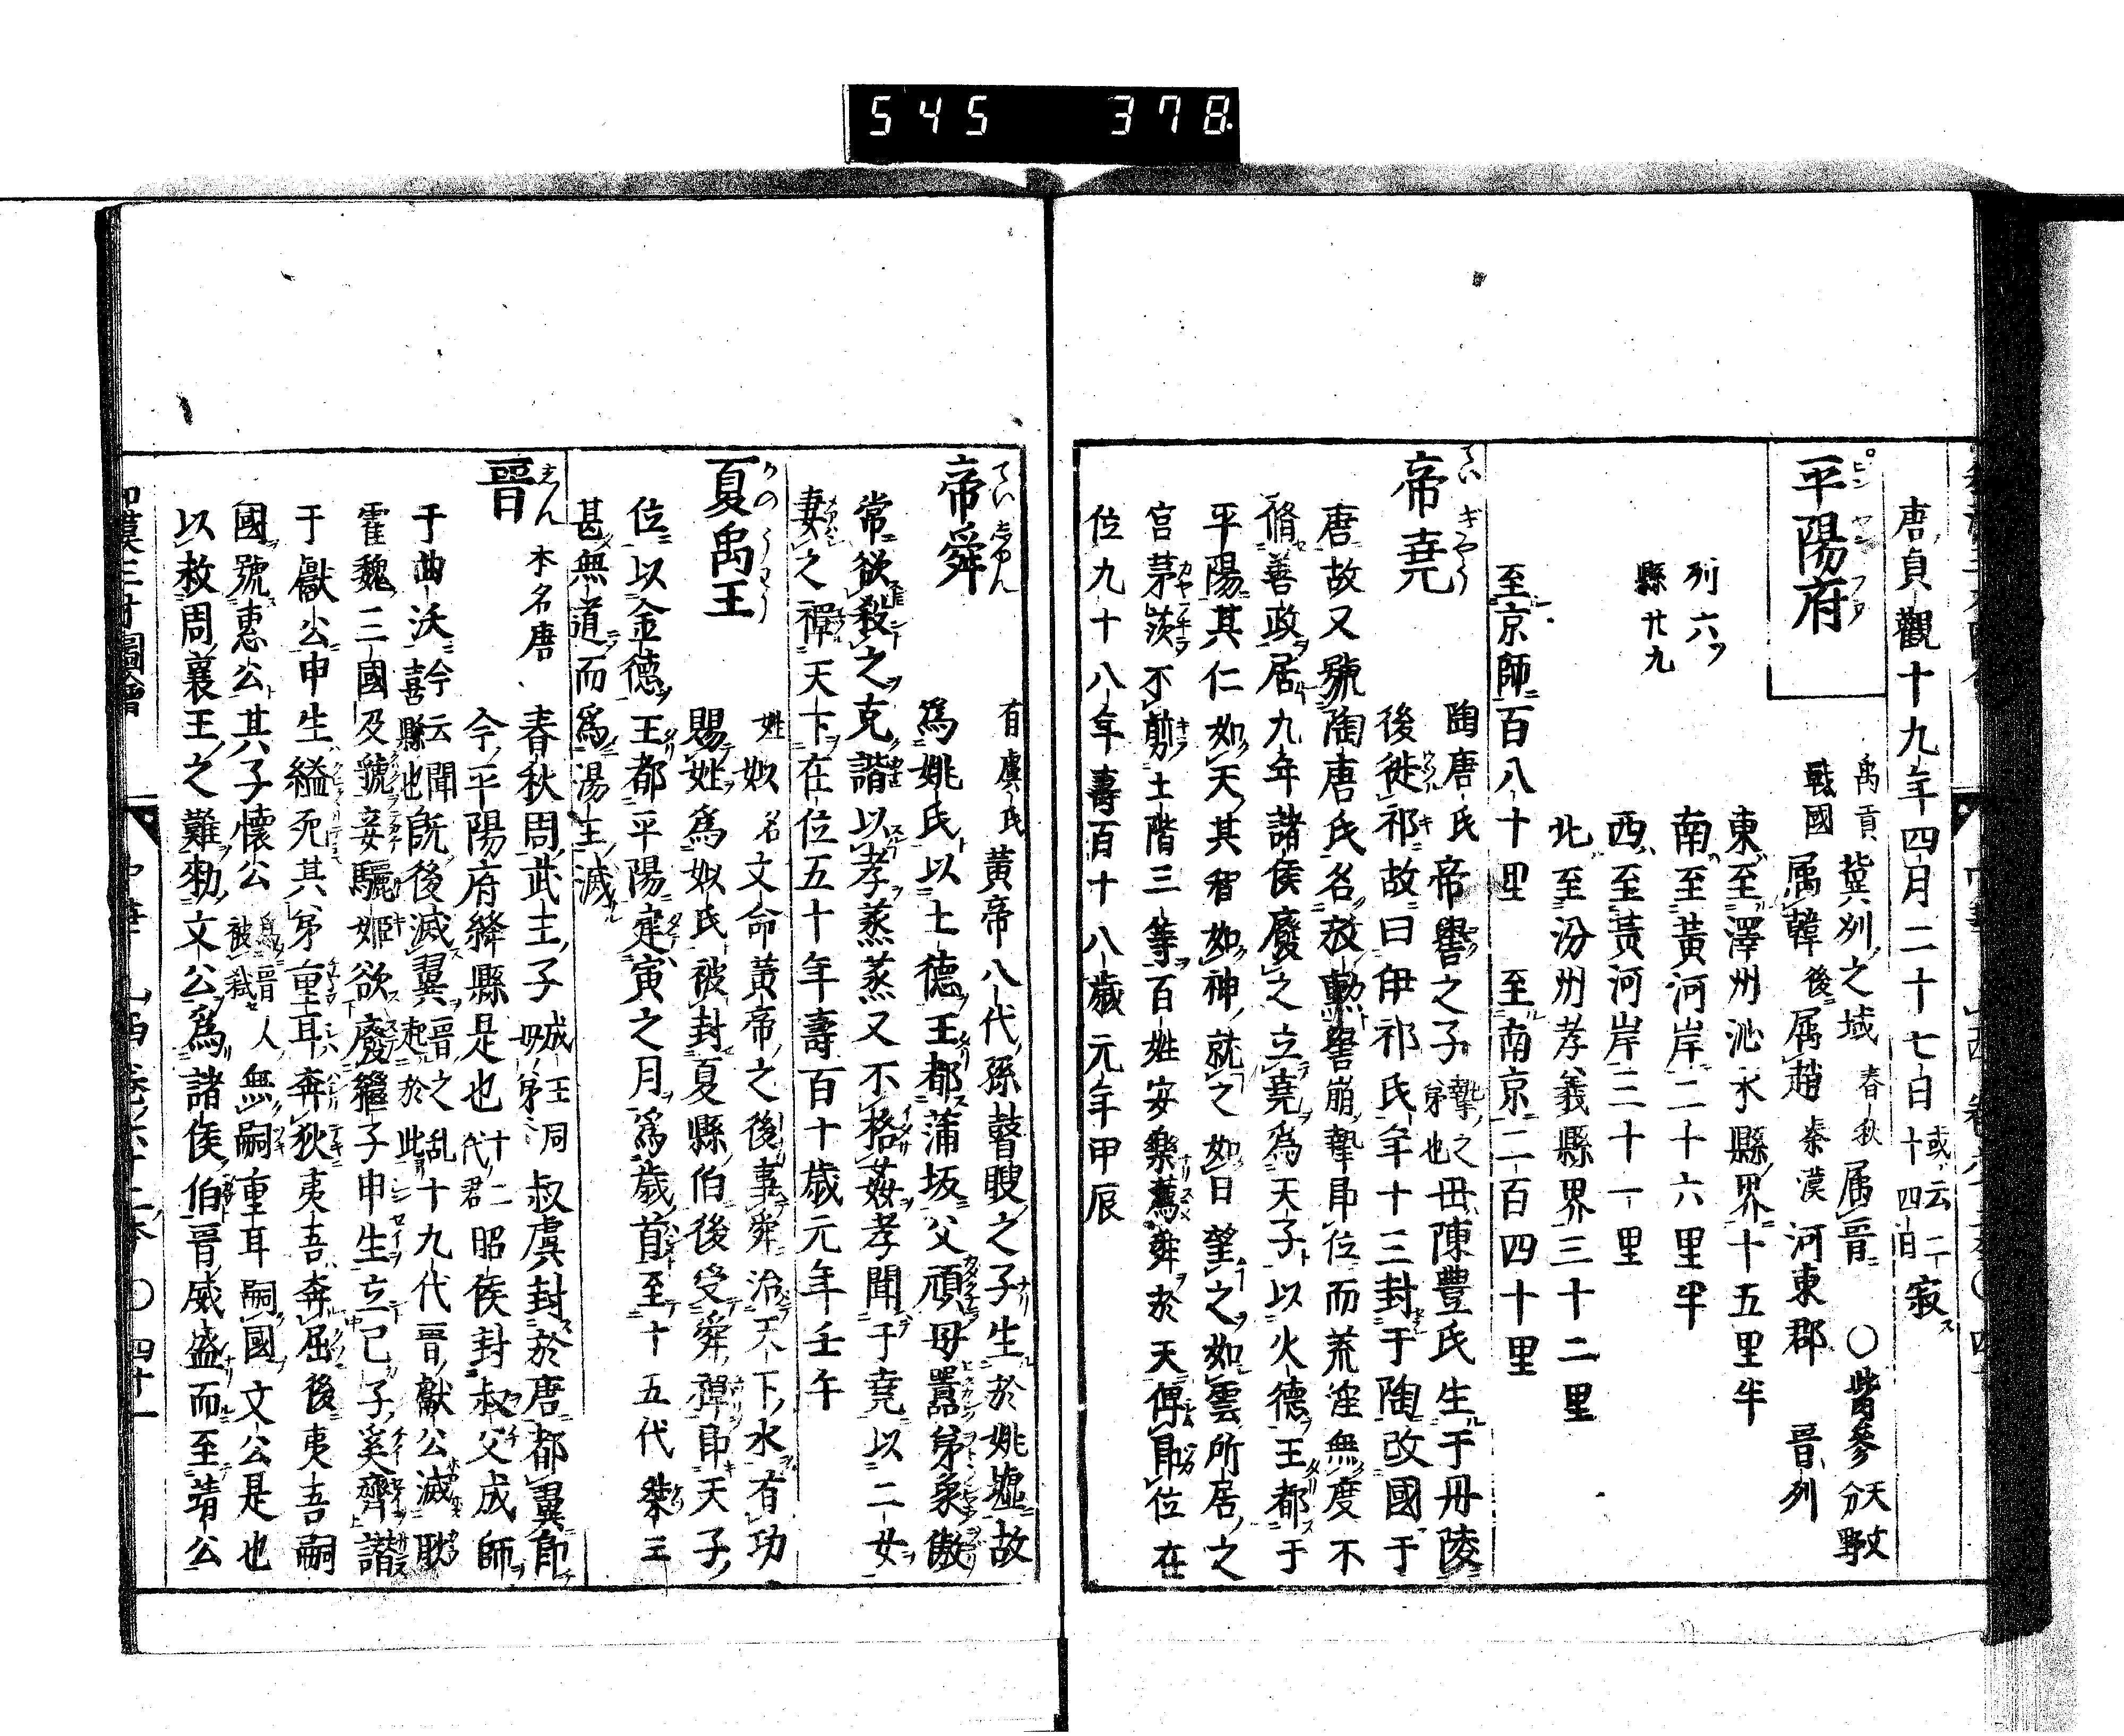 545 378
唐貞觀十九年四月二十七日或云二十四日寂ス
平陽府
ピンヤンフウ
禹貢冀州之域 春秋属晋 ○觜參天文分野
戰國属韓後属趙 秦漢河東郡 晋州
州六ツ
縣廿九
東至澤州沁水縣界十五里半
南至黃河岸二十六里半
西至黃河岸三十一里
北至汾州孝義縣界三十二里
至京師百八十里 至南京二百四十里
帝堯
ていぎやう
陶唐氏帝嚳之子摯之弟也母陳豐氏生于丹陵
後徙祁故曰伊祁氏年十三封于陶改國于
唐故又號陶唐氏名放勳嚳崩摯即位而荒淫無度不
脩善政居九年諸侯廢之立堯為天子以火德王都于
平陽其仁如天其智如神就之如日望之如雲所居之
宮茅茨不剪土階三等百姓安樂薦舜於天俾即位在
位九十八年壽百十八歲元年甲辰
帝舜
ていしゆん
有虞氏黃帝八代孫瞽瞍之子生於姚墟故
爲姚氏以土德王都蒲坂父頑母嚚弟象傲
常欲殺之克諧以孝蒸蒸乂不格姦孝聞于堯以二女
妻之禪天下在位五十年壽百十歲元年壬午
夏禹王
かのうわう
姓姒名文命黃帝之後事舜治天下水有功
賜姓爲姒氏被封夏縣伯後受舜禪即天子
位以金德王都平陽建寅之月爲歲首至十五代桀王
甚無道而爲湯王滅
晋
しん
本名唐 春秋周武王子成王同母弟叔虞封於唐都翼即
今平陽府絳縣是也十二代君昭侯封叔父成師
于曲沃今云聞喜縣也既後滅翼晋之乱起於此十九代晋獻公滅耿
霍魏三國及號妾驪姬欲廢繼子申生立己子奚齊譖
于獻公申生縊死其弟重耳奔狄夷吾奔屈後夷吾嗣
國號惠公其子懷公爲晋人被弑無嗣重耳嗣國文公是也
以救周襄王之難勑文公爲諸侯伯晋威盛而至靖公
和漢三才圖會
中華 山西 卷六十二本 ○四十一